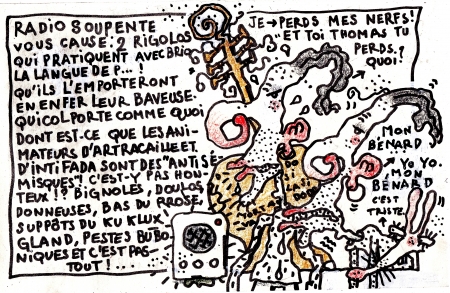 RADIO SOUPENTE
VOUS CAUSE: 2 RIGOLOS
QUI PRATIQUENT AVEC BRIO
LA LANGUE DE P...!
QU'ILS L'EMPORTERONT
EN ENFER LEUR BAVEUSE.
QUI COLPORTE COMME QUOI
DONT EST-CE QUE LES ANI-
MATEURS D'ARTRACAILLE ET
D'INTIFADA SONT DES "ANTISÉ-
MISQUES"! C'EST-Y PAS HON-
TEUX!? BIGNOLES, DOULOS
DONNEUSES, BAS DU RROSE,
SUPPÔTS DU KU KLUX
GLAND, PESTES BUBO-
NIQUES ET C'EST PAS-
TOUT!...
JE → PERDS MES NERFS!
ET TOI THOMAS TU
PERDS.
QUOI?
MON
BÉNARD
YO. YO.
MON
BÉNARD
C'EST
TRISTE.